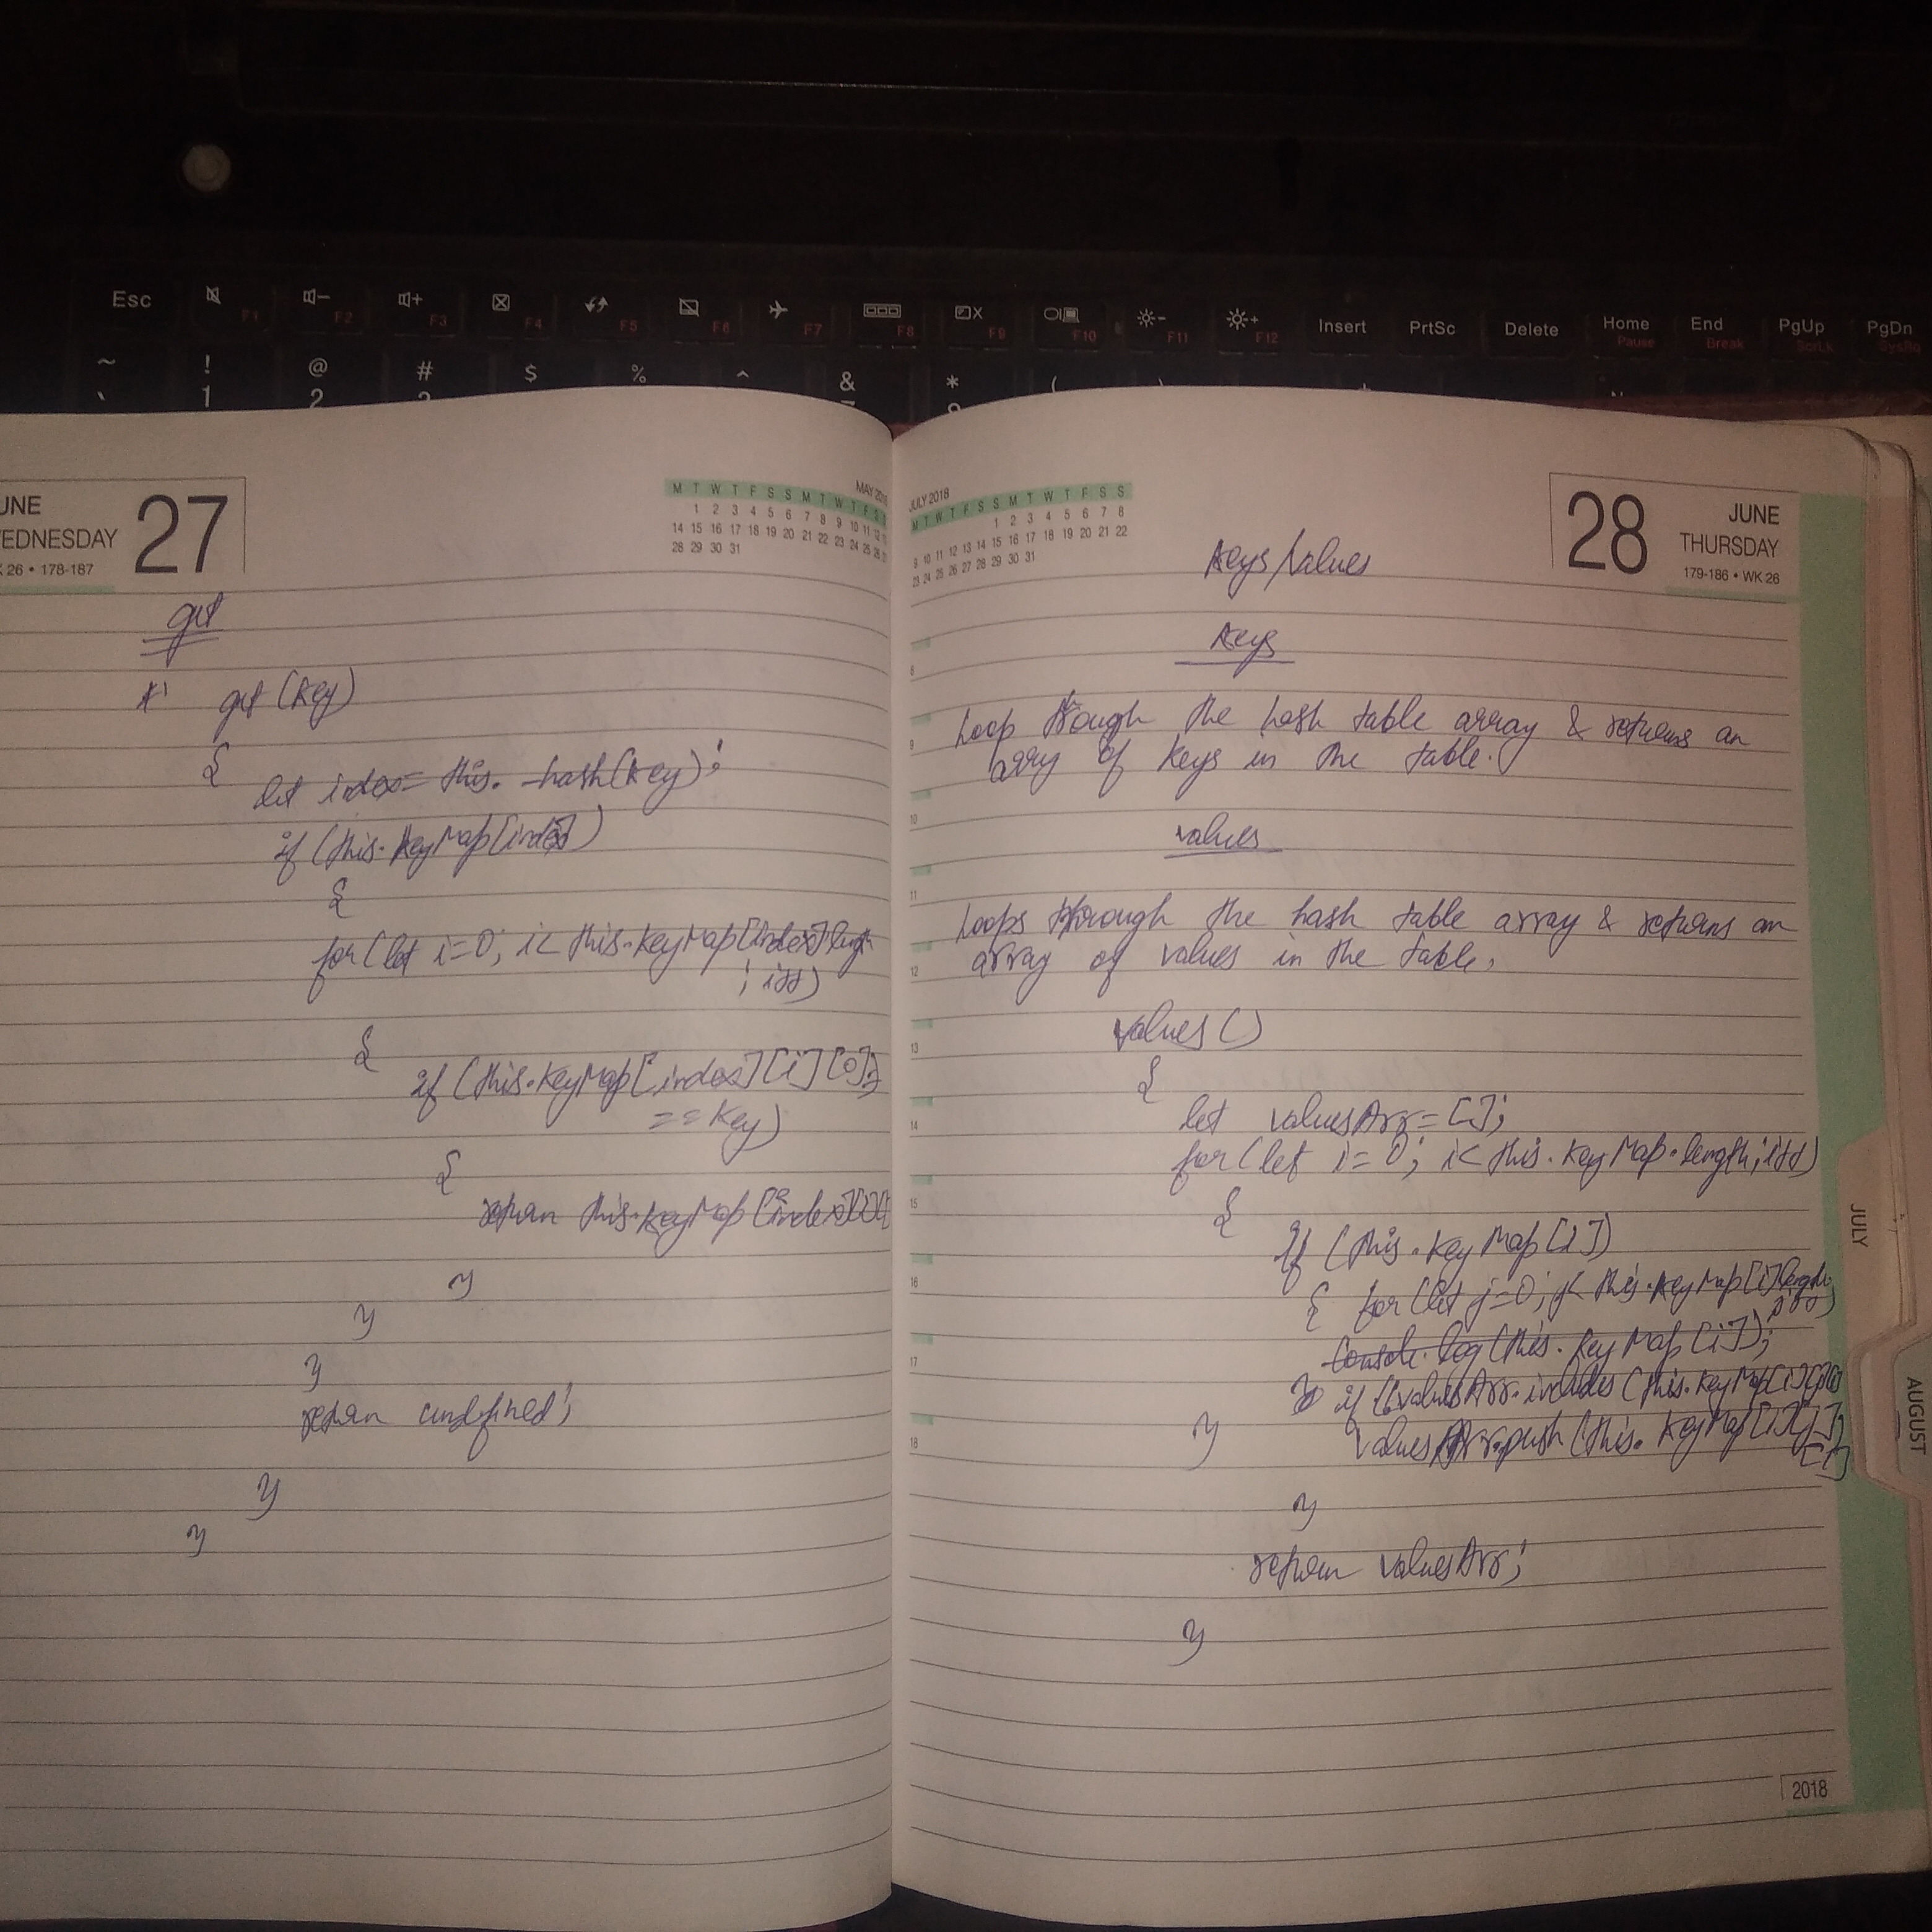 Esc
F1 F2 F3 F4 F5 F6 F7 F8 F9 F10 F11 F12
Insert PrtSc Delete Home End PgUp PgDn
Pause Break ScrLk SysRq
~ ! @ # $ % ^ & * (
` 1 2
UNE
EDNESDAY
27
26 • 178-187
MAY 2018
M T W T F S S M T W T F S S
1 2 3 4 5 6 7 8 9 10 11 12 13
14 15 16 17 18 19 20 21 22 23 24 25 26
28 29 30 31
get
get (key)
{
let index = this._hash(key);
if (this.keyMap[index])
{
for (let i=0; i< this.keyMap[index].length
; i++)
{
if (this.keyMap[index][i][0]=
== key)
{
return this.keyMap[index][i]
}
}
}
return undefined;
}
}
JULY 2018
M T W T F S S M T W T F S S
1 2 3 4 5 6 7 8
9 10 11 12 13 14 15 16 17 18 19 20 21 22
23 24 25 26 27 28 29 30 31
28
JUNE
THURSDAY
179-186 • WK 26
Keys/Values
Keys
8
Loop through the hash table array & returns an
9
arry of keys in the table.
10
values
11
Loops through the hash table array & returns an
12
array of values in the table.
values ()
13
{
14
let valuesArr = [];
for (let i=0; i< this.keyMap.length; i++)
15
{
if (this.keyMap[i])
16
{ for (let j=0; j< this.keyMap[i].length;
j++)
17
console.log(this.keyMap[i]);
if (!valuesArr.includes (this.keyMap[i][j]
18
} valuesArr.push (this.keyMap[i][j]
[1]
}
return valuesArr;
}
2018
JULY
AUGUST